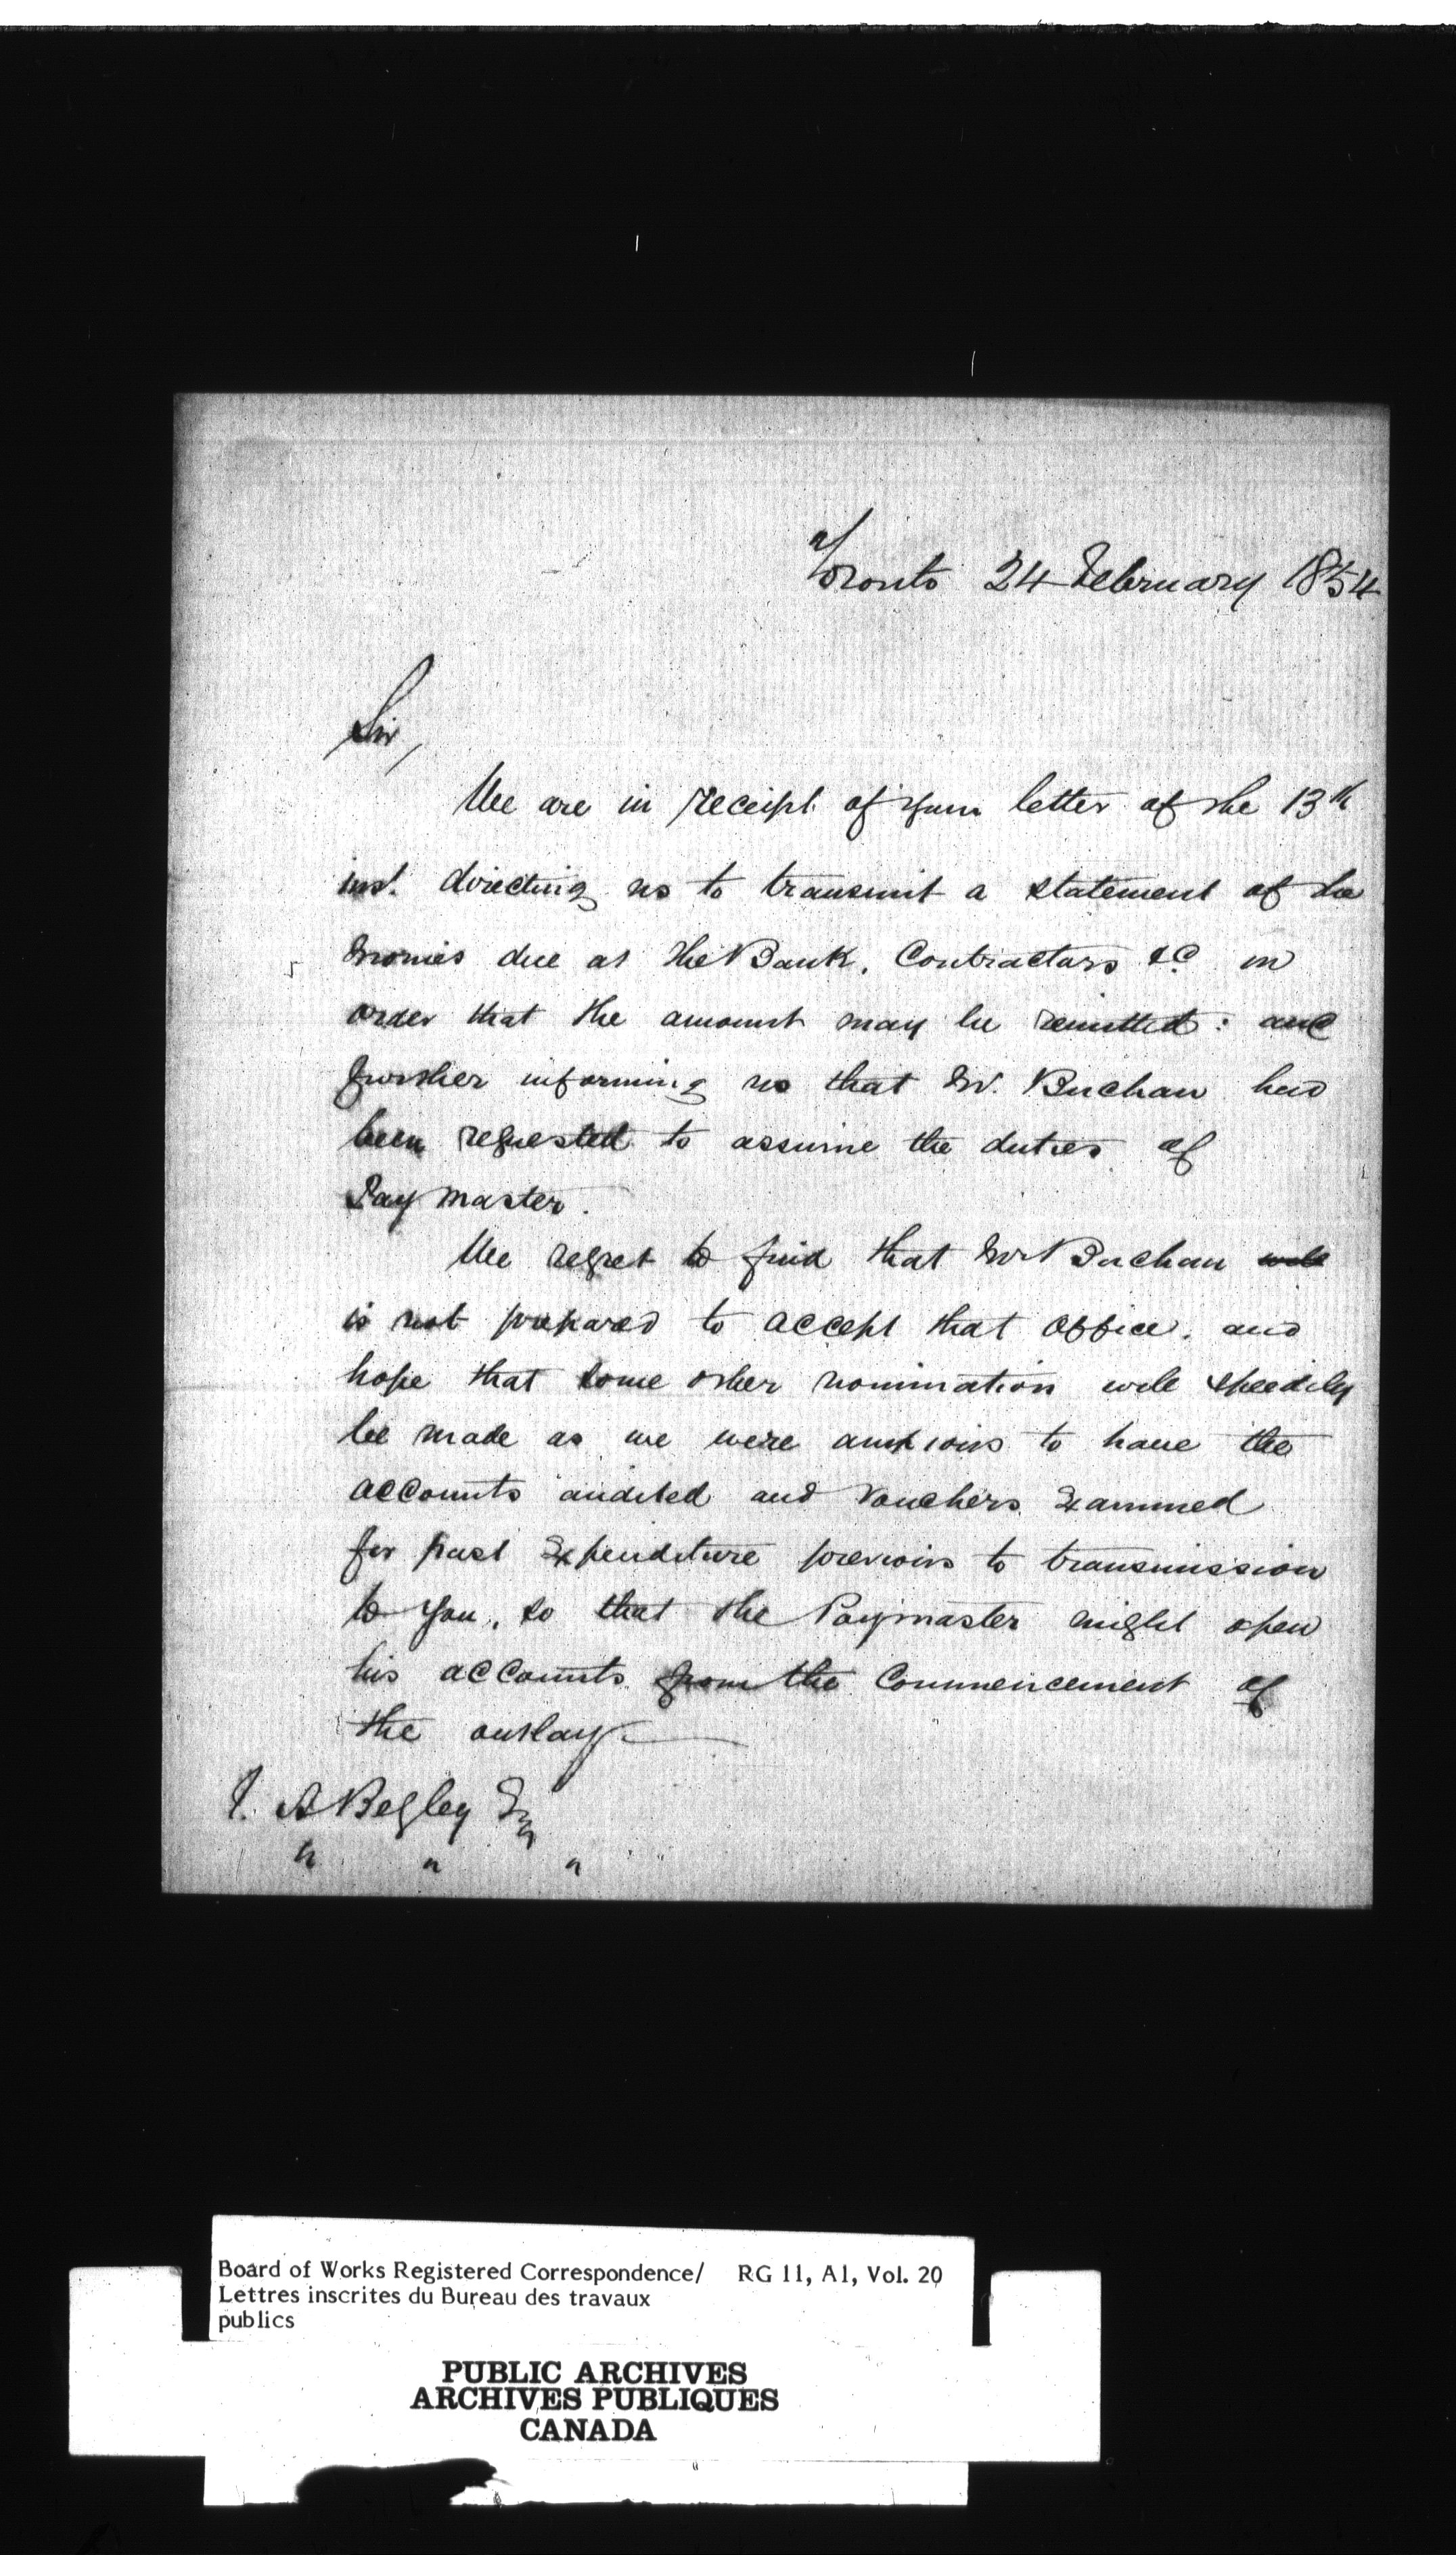 Toronto 24 February 1854
Sir,
We are in receipt of your letter of the 13th
inst. directing us to transmit a statement of the
monies due at the Bank, Contractors &c in
order that the amount may be remitted: and
further informing us that Mr. Buchan had
been requested to assume the duties of
Pay master.
We regret to find that Mr Buchan will
is not prepared to accept that office, and
hope that some other nomination will speedily
be made as we were anxious to have the
accounts audited and vouchers Examined
for past Expenditure previous to transmission
to you, so that the Paymaster might open
his accounts from the Commencement of
the outlay
T. A Begley Esq
" " "
Board of Works Registered Correspondence/ RG 11, A1, Vol. 20
Lettres inscrites du Bureau des travaux
publics
PUBLIC ARCHIVES
ARCHIVES PUBLIQUES
CANADA